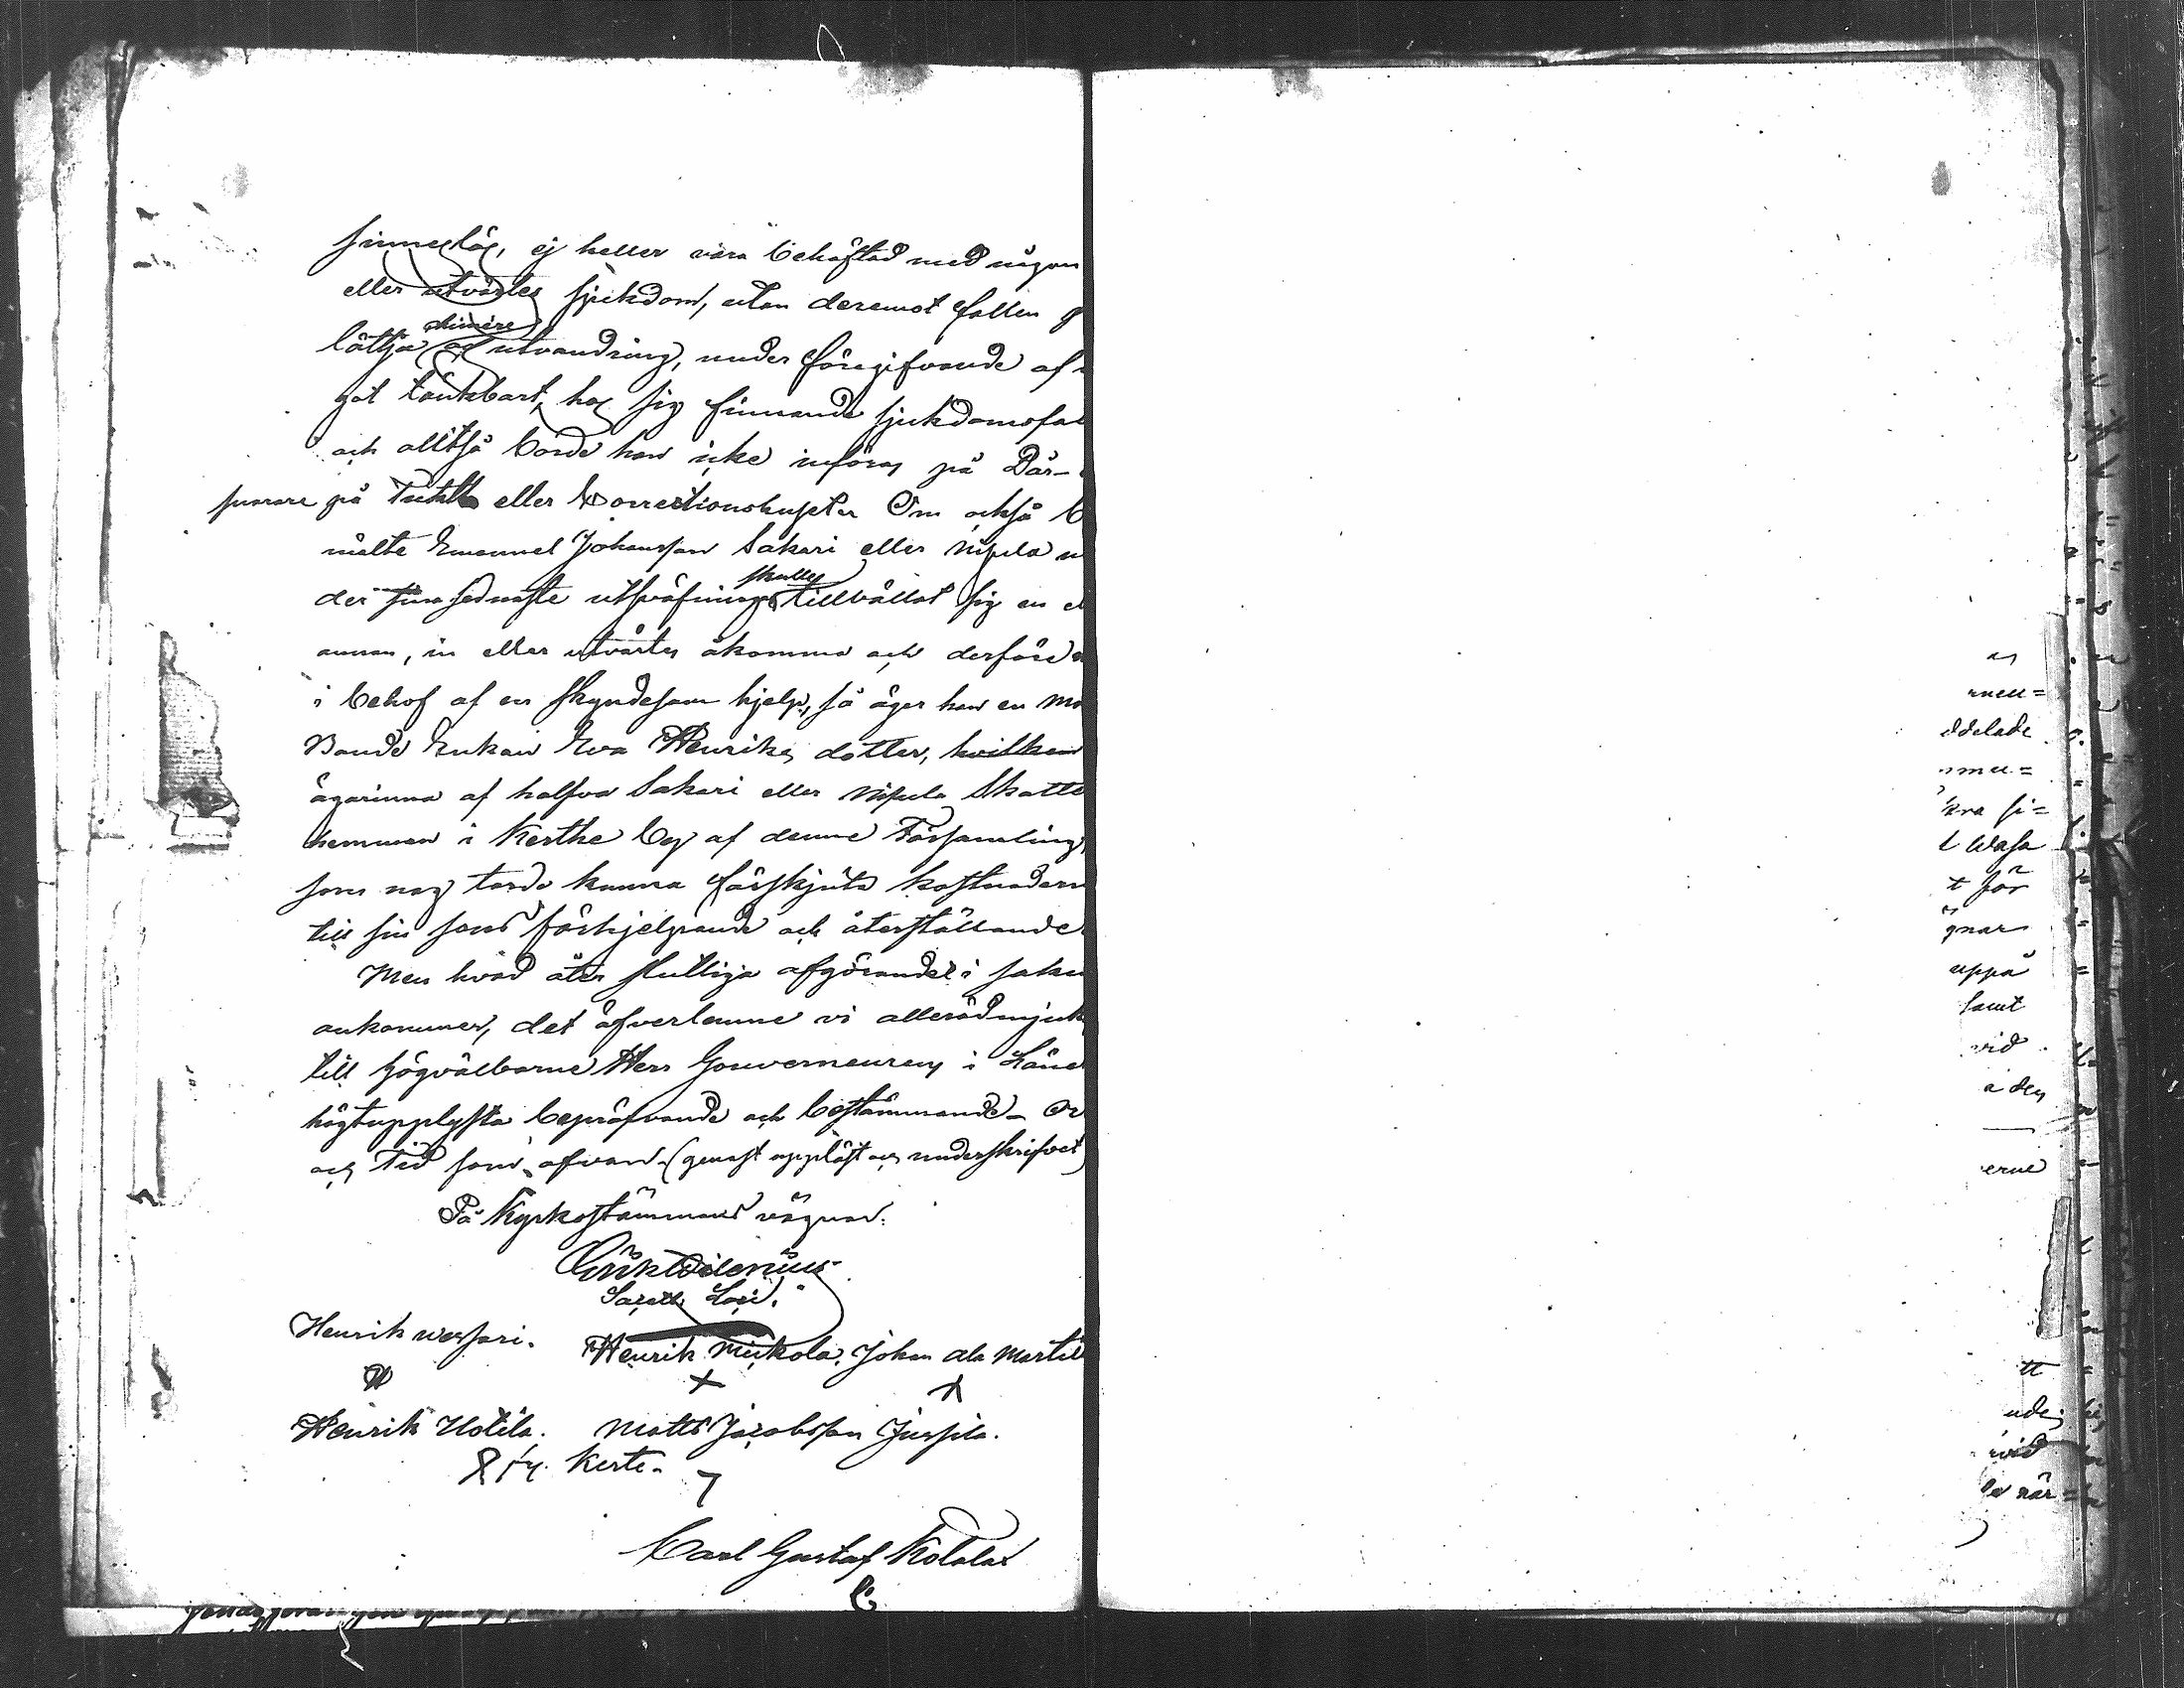 sinneslös, ej heller vara behäftad med någon
eller utvärtes sjukdom, utan deremot fallen
lättja och utvandring, under föregifvande af
got tänkbart, hos sig finnande sjukdomsfal
och alltså borde han icke införas på Dår-
snarare på eller Correctionshuset. Om också b
mälte Emanuel Johansson Sakari eller Nipula u
skulle
der sin sednaste utsväfning tillvållat sig en el
annan, in eller utvärtes åkomma och derföre
i behof af en skyndesam hjelp, så äger han en Mo
Bonde Enkan Eva Henriks dotter, hvilken
ägarinna af halfva Sakari eller Nipula Skatte
hemman i Kerthe by af denne Församling,
som nog torde kunna förskjuta kostnadern
till sin sons förhjelpande och återställande
Men hvad åter slutliga afgörandet i saken
ankommer, det öfverlemne vi allerödmjuk
till Högvälborne Herr Gouverneurens i Läne
högtupplysta bepröfvande och bestämmande. Or
och Tid som ofvan. (genast uppläst och underskrifvet)
På Kyrkostämmans vägnar:
Erik Dilenius
Sacell. Loci.
Henrik Wessari. Henrik Mickola. Johan ala Martil
Henrik Uotila. Matts Jacobsson Jussila.
Kerte.
Carl Gustaf Kotala
as
men=
ddelade
t Wasa
t för
gnar
uppå
samt
vid
a den
erne
tt
ude
vid
la när=